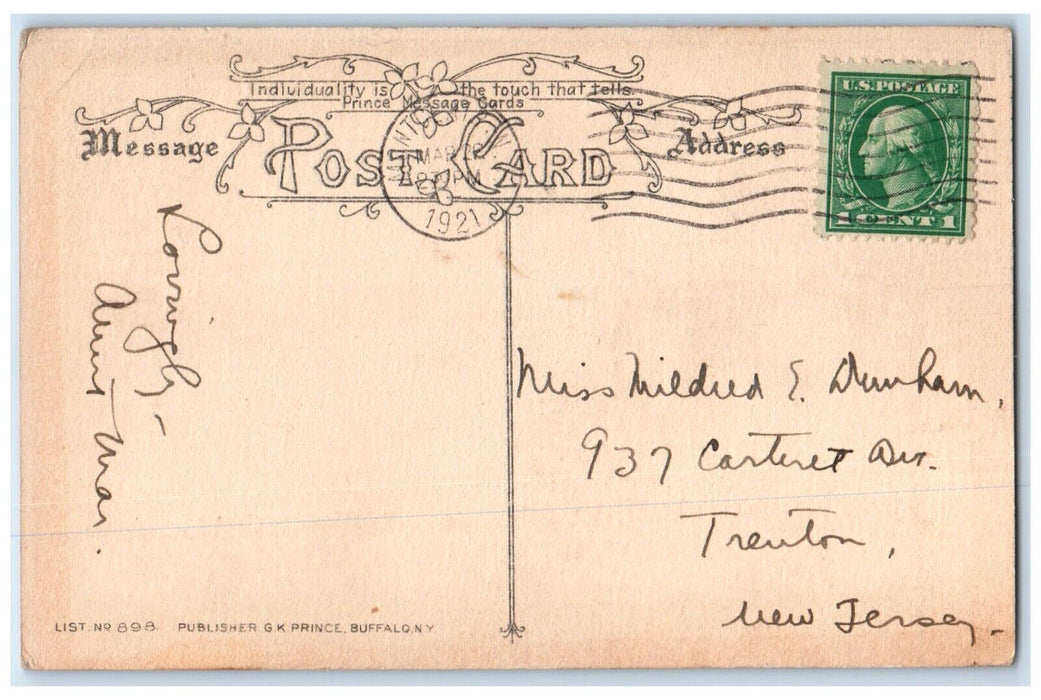 Individuality is the touch that tells.
Prince Message Cards
Message
POST CARD
Address
MAR
PM
1921
U.S. POSTAGE
1 CENT 1
Lovingly -
Aunt Mar.
Miss Mildred E. Dunham,
937 Carteret Av.
Trenton,
New Jersey.
LIST. NO 898. PUBLISHER G.K. PRINCE, BUFFALO, N.Y.